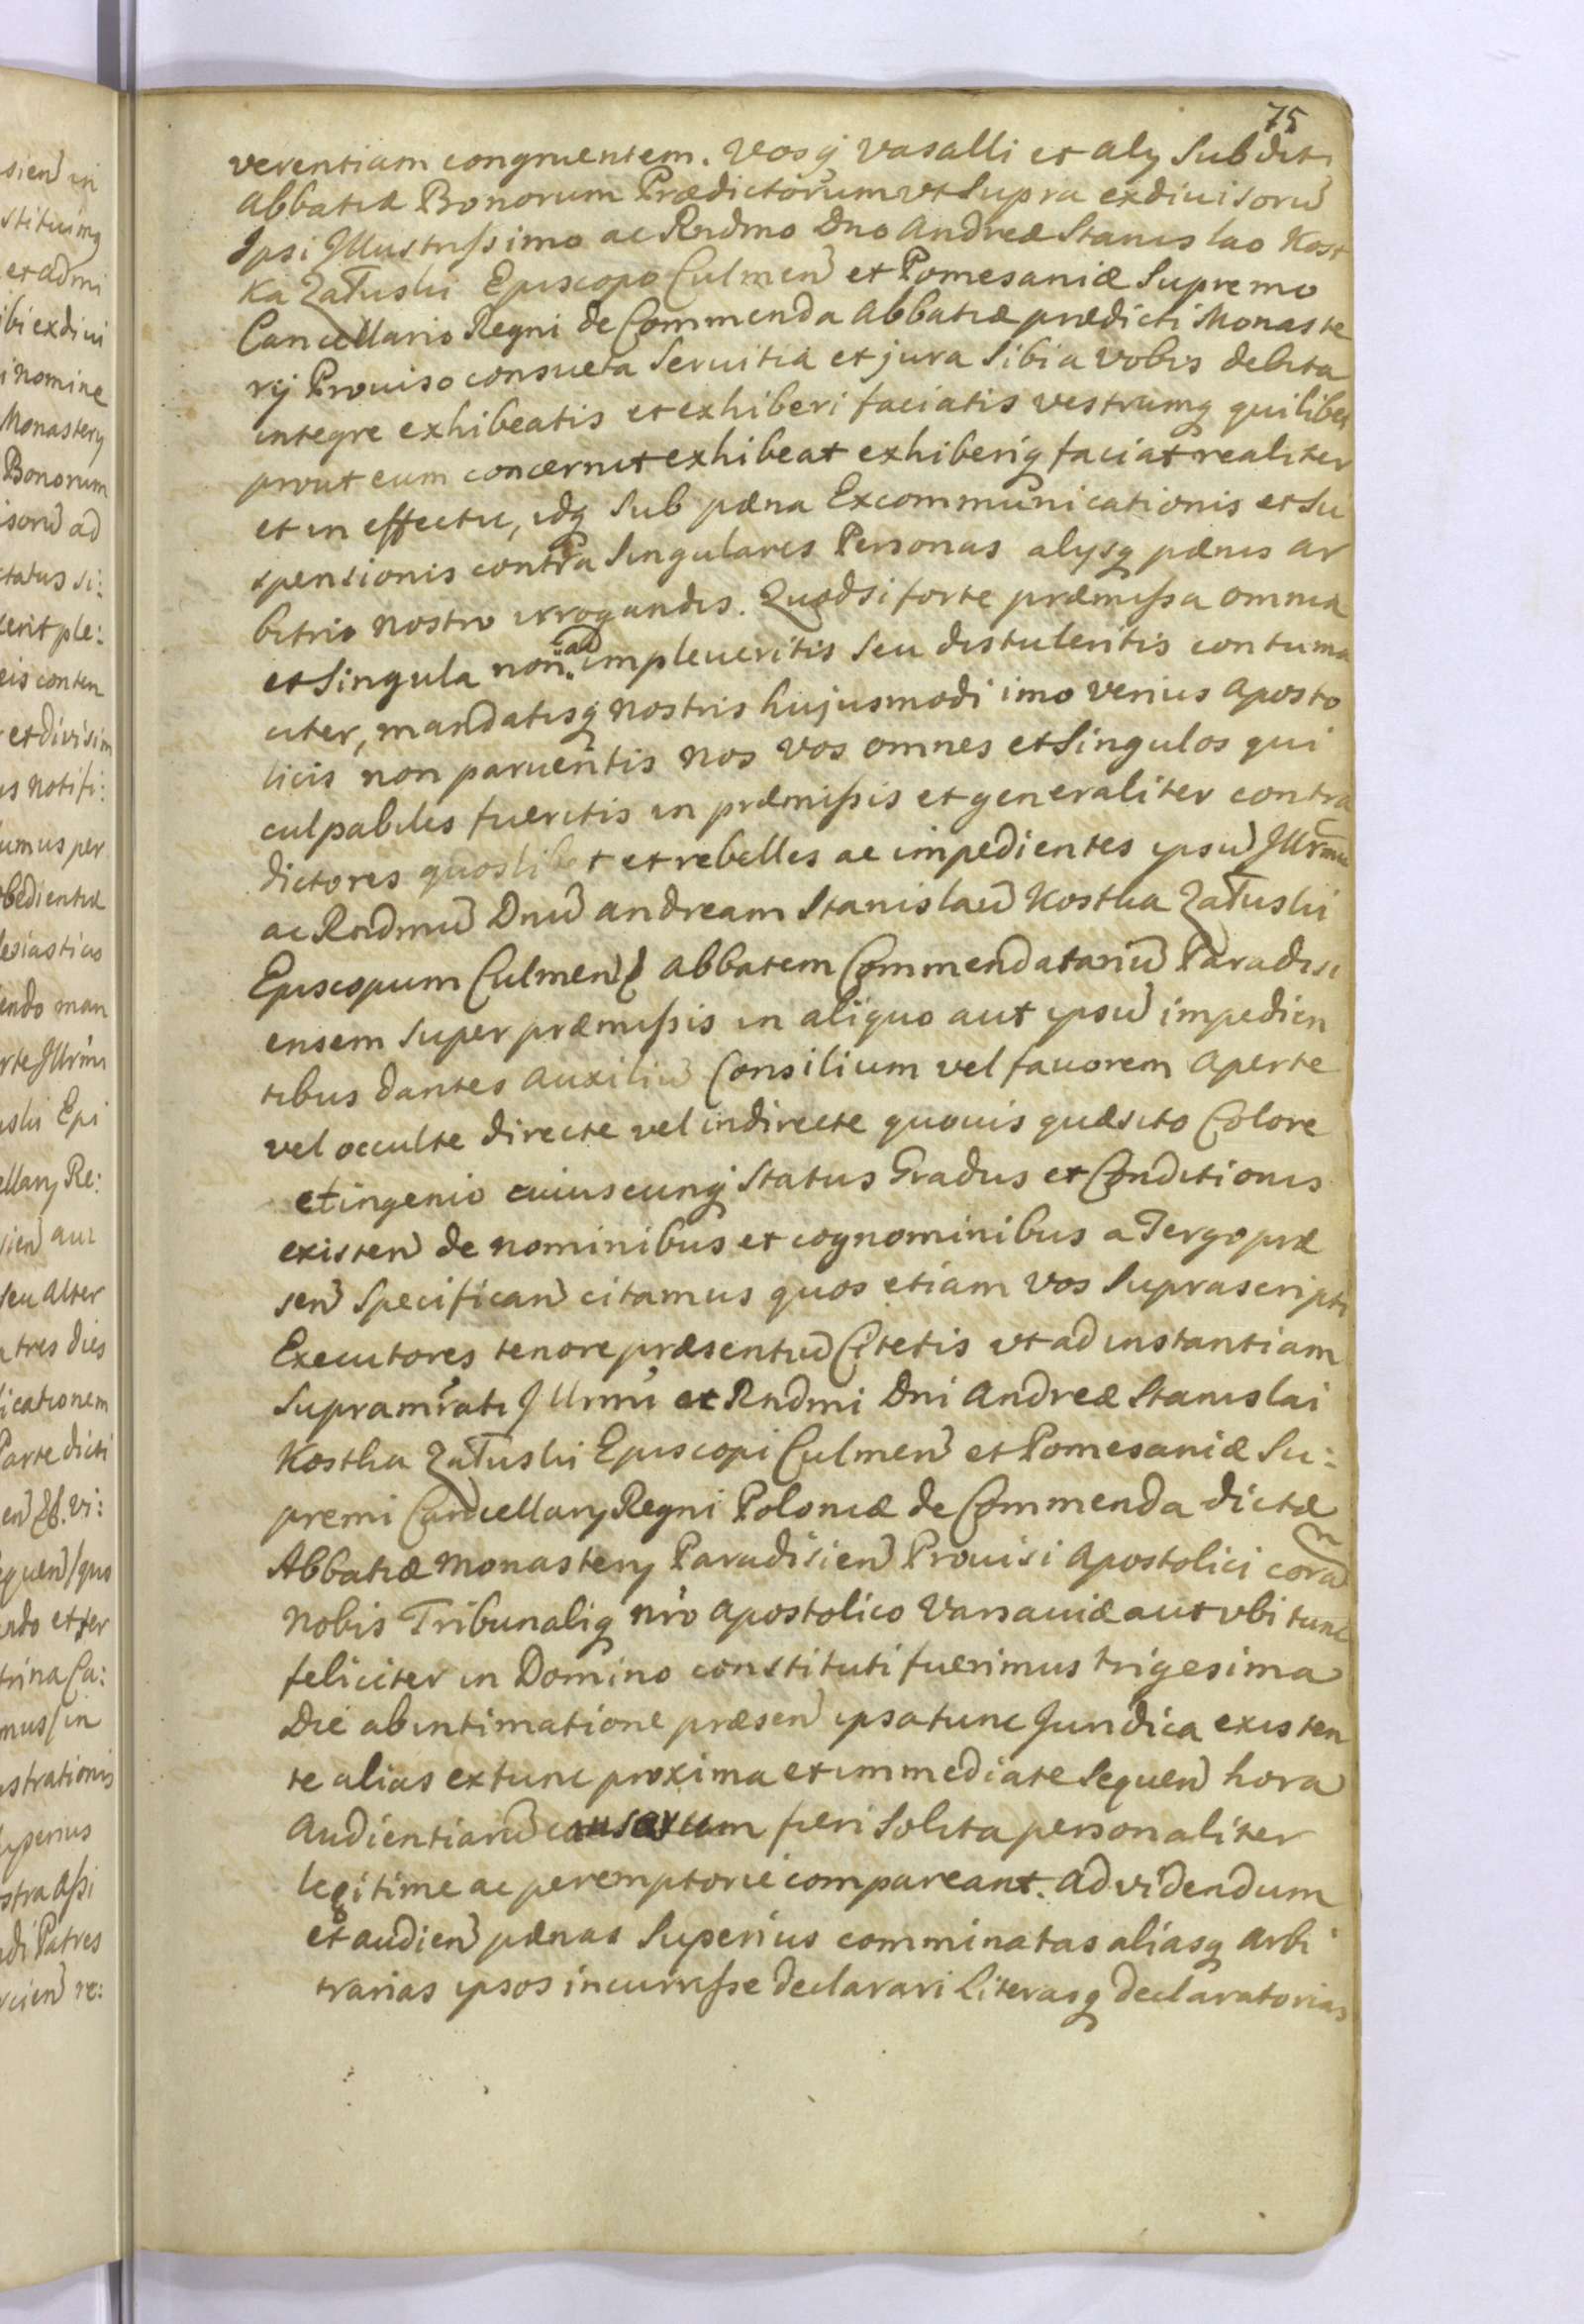 75
verentiam congruentem. Vosq vasalli et alÿ Subditi
Abbatiæ Bonorum Prædictorum vt Supra exdiuisorū
Ipsi Illustrissimo ac Rndmo Dno Andreæ Stanislao Kost
ka Załuski Episcopo Culmen et Pomesaniæ Supremo
Cancellario Regni de Commenda Abbatiæ prædicti Monaste
rij Prouiso consueta Seruitia et jura Sibi a vobis debita
integre exhibeatis et exhiberi faciatis vestrumq quilibet
prout eum concernit exhibeat exhiberiq faciat realiter
et in effectu, idq Sub pæna Excommunicationis et Su
spensionis contra Singulares Personas alÿsq pænis ar
bitrio nostro irrogandis. Quodsi forte præmissa omnia
et Singula non ad impleueritis Seu distuleritis contuma
citer, mandatisq nostris hujusmodi imo verius Aposto
licis non parueritis Nos Vos omnes et Singulos qui
culpabiles fueritis in præmissis et generaliter contra
dictores quoslibet et rebelles ac impedientes ipsū Illrmū
ac Rndmū Dnū Andream Stanislaū Kostka Załuski
Episcopum Culmen Abbatem Commendatariū Paradisi
ensem Super præmissis in aliquo aut ipsū impedien
tibus dantes Auxiliū Consilium vel fauorem Aperte
vel occulte directe vel indirecte quouis quæsito Colore
et ingenio cuiuscunq Status Gradus et Conditionis
existen de nominibus et cognominibus a Tergo præ
sen Specifican citamus quos etiam Vos Suprascripti
Executores tenore præsentiū Citetis vt ad instantiam
Supramrati Illrmi et Rndmi Dni Andreæ Stanislai
Kostka Załuski Episcopi Culmen et Pomesaniæ Su:
premi Cancellarÿ Regni Poloniæ de Commenda dictæ
Abbatiæ Monasterÿ Paradisien Prouisi Apostolici corā
Nobis Tribunaliq nro Apostolico Varsauiæ aut vbi tunc
feliciter in Domino constituti fuerimus trigesima
Die ab intimatione præsen ipsa tunc Juridica existen
te alias extunc proxima et immediate Sequen hora
Audientiarū causarum fieri Solita personaliter
legitime ac peremptorie compareant. Ad videndum
et audien pænas Superius comminatas aliasq Arbi
trarias ipsos incurrisse declarari Literasq declaratorias